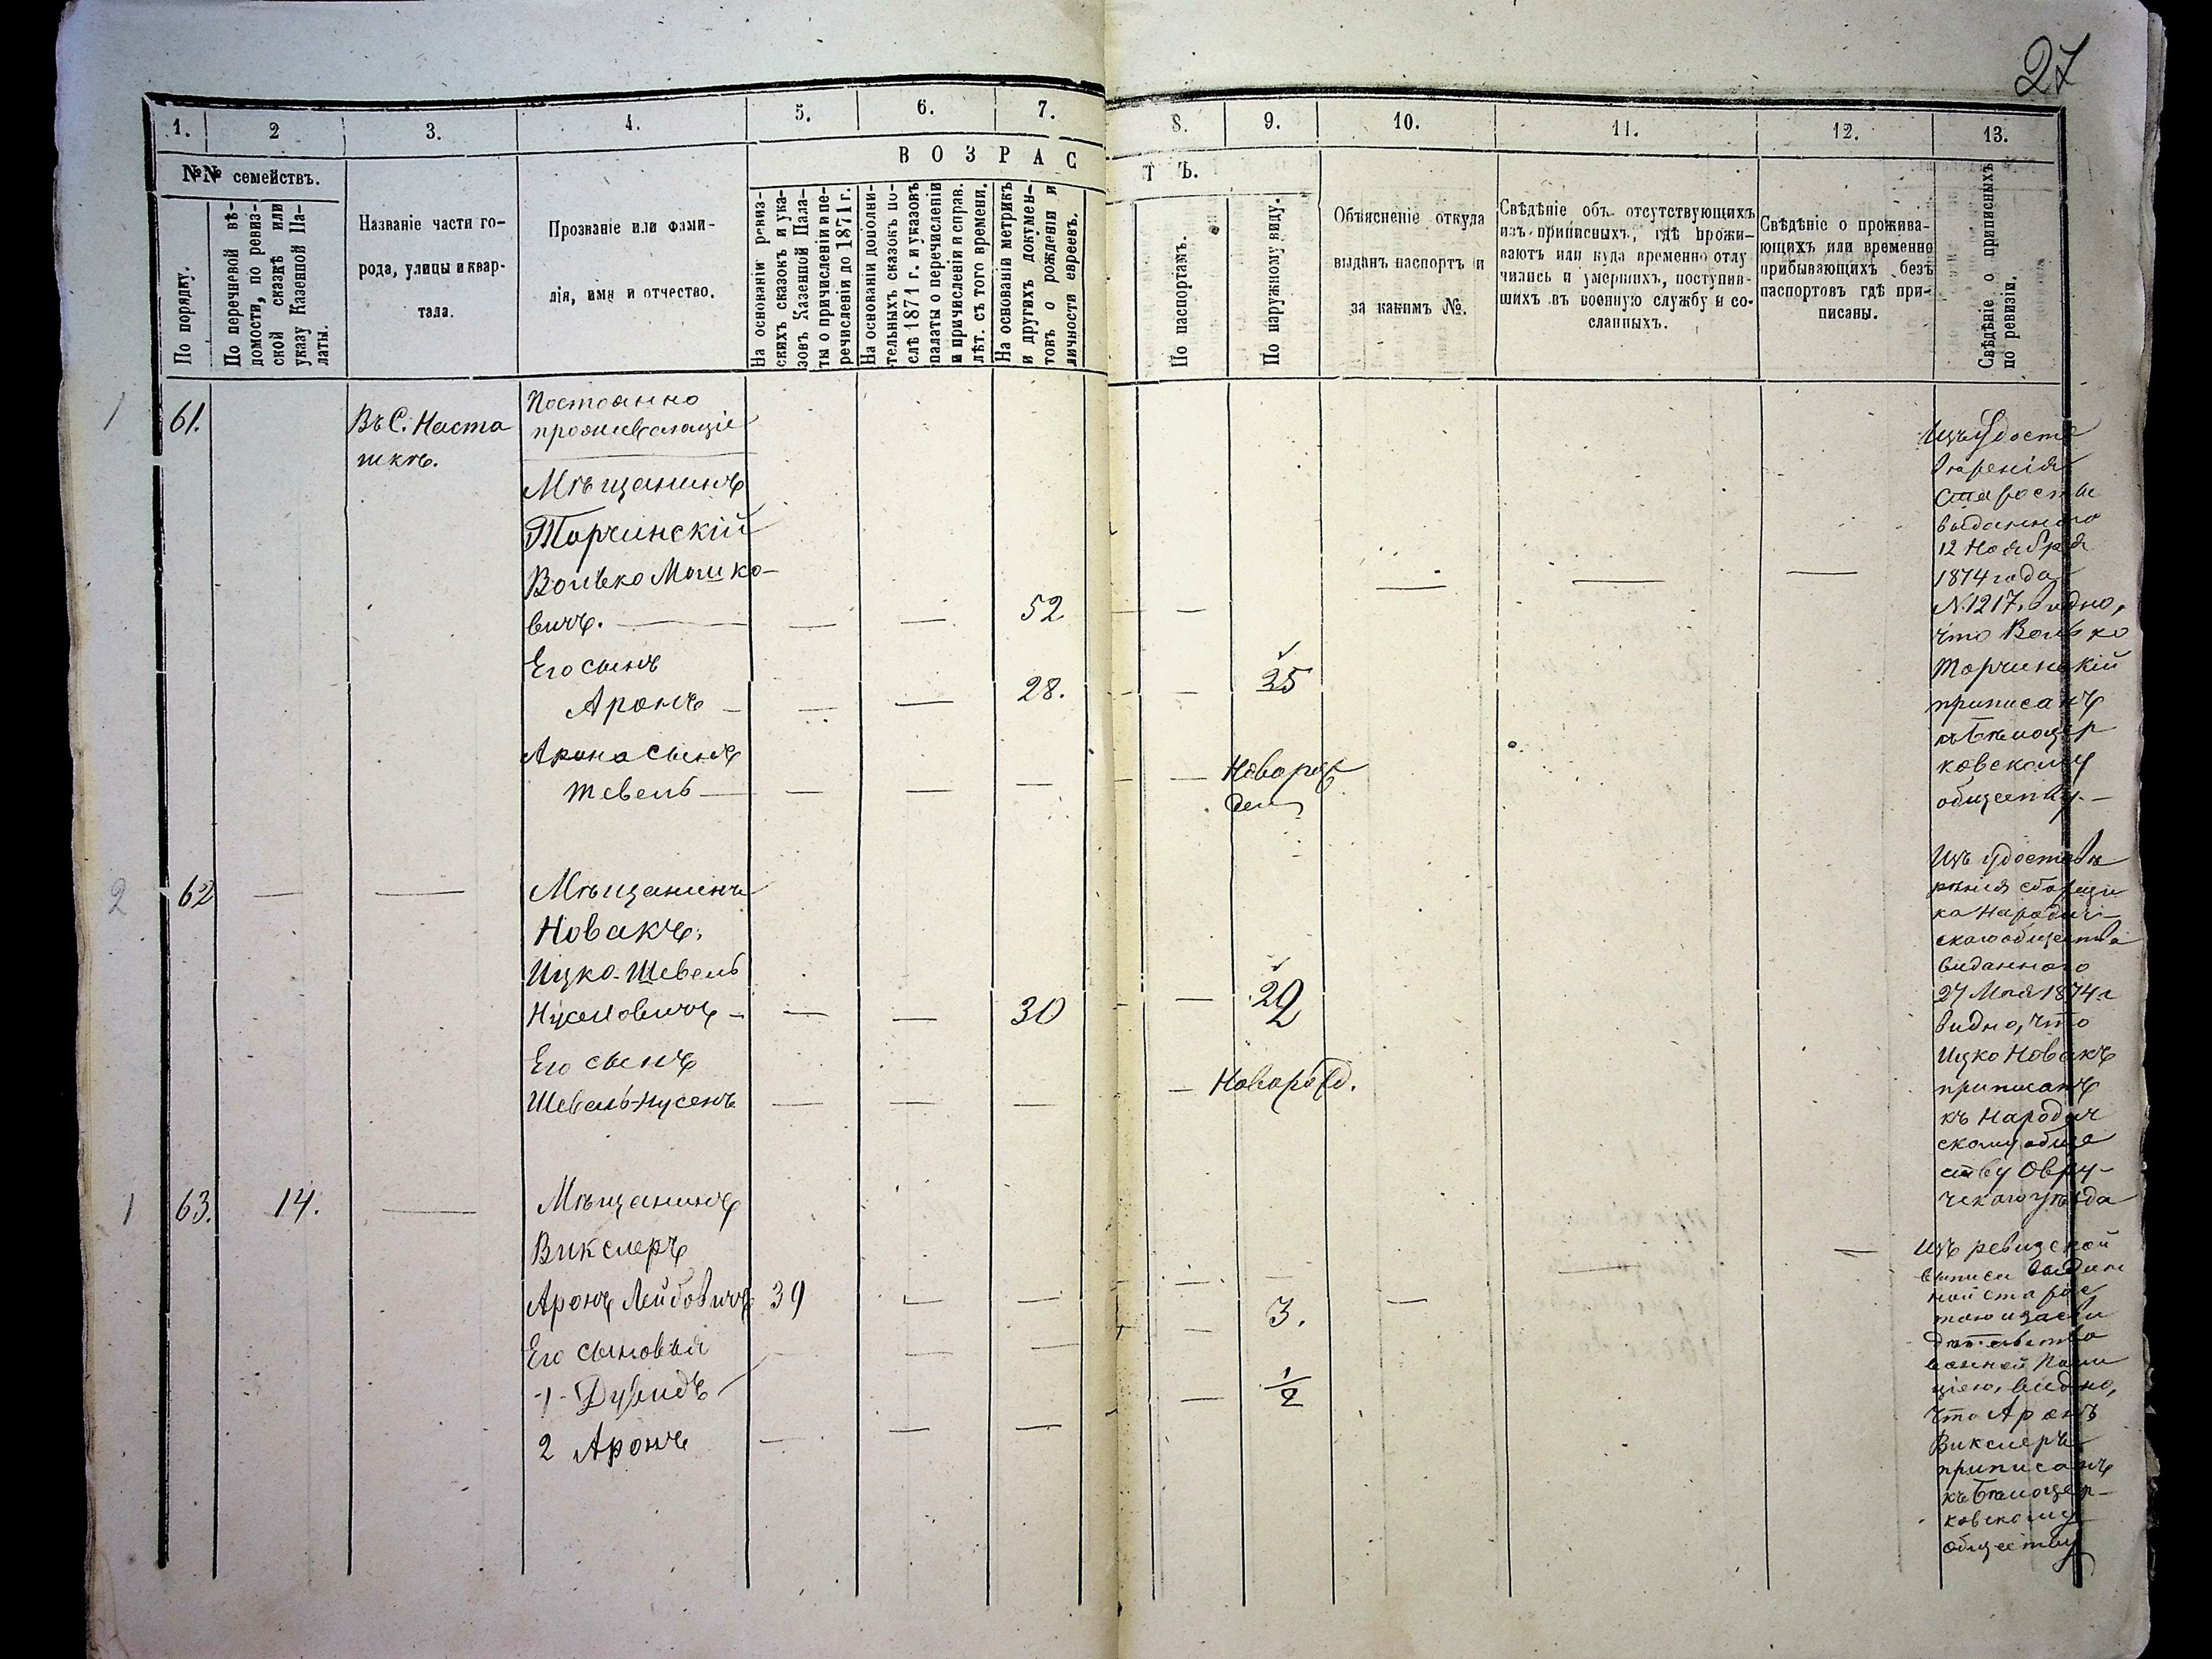 27
1. 2 3. 4. 5. 6. 7. 8. 9. 10. 11. 12. 13.
№№ семействъ.
В О З Р А С Т Ъ.
По порядку.
По перечневой вѣ-
домости, по ревиз-
ской сказкѣ или
указу Казенной Па-
латы.
Названіе части го-
рода, улицы и квар-
тала.
Прозваніе или фами-
лія, имя и отчество.
На основаніи ревиз-
скихъ сказокъ и ука-
зовъ Казенной Пала-
ты о причисленіи и пе-
речисленіи до 1871 г.
На основаніи дополни-
тельныхъ сказокъ по-
слѣ 1871 г. и указовъ
палаты о перечисленіи
и причисленіи и справ.
лѣт. съ того времени.
На основаніи метрикъ
и другихъ докумен-
товъ о рожденіи и
личности евреевъ.
По паспортамъ.
По наружному виду.
Объясненіе откуда
выданъ паспортъ и
за какимъ №.
Свѣдѣніе объ отсутствующихъ
изъ приписныхъ, гдѣ прожи-
ваютъ или куда временно отлу
чились и умершихъ, поступив-
шихъ въ военную службу и со-
сланныхъ.
Свѣдѣніе о прожива-
ющихъ или временно
прибывающихъ безъ
паспортовъ гдѣ при-
писаны.
Свѣдѣніе о приписныхъ
по ревизіи.
1 61. Въ С. Наста
шкѣ.
Постоянно
проживающіе
Мѣщанинъ
Торчинскій
Волько Мошко-
вичъ. — — — 52 —
Его сынъ
Аронъ — — — 28. — 25
Арона сынъ
Тевель — — — — — Новорож
ден
Изъ Удосто
вѣренія
Старосты
выданного
12 Ноября
1874 года
N. 1217. видно,
что Волько
Торчинскій
приписанъ
къ Бѣлоцер
ковскому
обществу. —
2 62 — — Мѣщанинъ
Новакъ,
Ицко-Шевель
Нусеновичъ — — — 30 — 29
Его сынъ
Шевель-Нусенъ — — — — Новорожд.
Изъ удостовѣ
рѣнія сборщи
ка Народич-
скаго общества
виданного
27 Мая 1874 г
видно, что
Ицко Новакъ
приписанъ
къ Народич
скому обще
ству Овру-
ческаго уѣзда
1 63. 14. — Мѣщанинъ
Викслеръ
Аронъ Лейбовичъ 39 — —
Его сыновья
1 Дувидъ — — — 3.
2 Аронъ — — — — 1/2
Изъ ревизской
выписи выдан
ной старос
тою и засви
дѣтельство
ванной Поли
ціею, видно,
что Аронъ
Викслеръ
приписанъ
къ Бѣлоцер-
ковскому
обществу